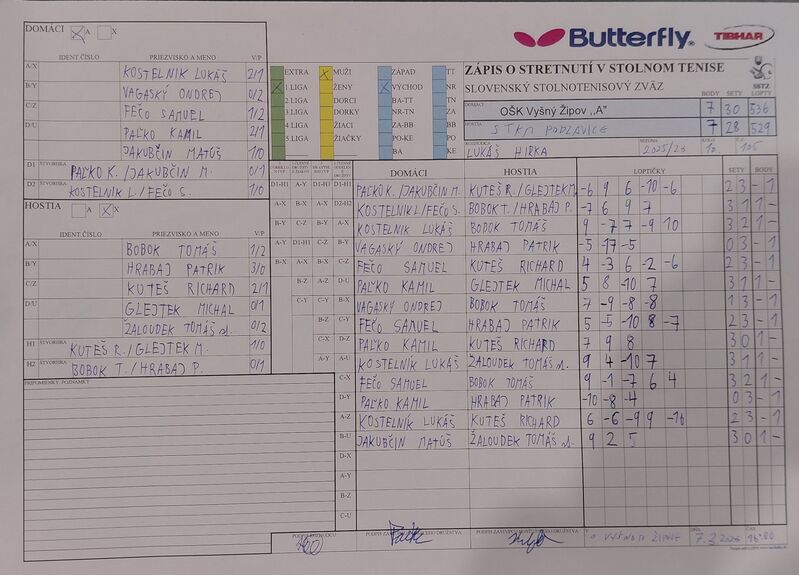 Butterfly
TIBHAR
DOMÁCI X A X
IDENT ČÍSLO PRIEZVISKO A MENO V/P
A/X KOSTELNÍK LUKÁŠ 2/1
B/Y VAGASKÝ ONDREJ 0/2
C/Z FEČO SAMUEL 1/2
D/U PAĽKO KAMIL 2/1
JAKUBČIN MATÚŠ 1/0
D1 ŠTVORHRA PAĽKO K. / JAKUBČIN M. 0/1
D2 ŠTVORHRA KOSTELNÍK L / FEČO S. 1/0
HOSTIA A X X
IDENT ČÍSLO PRIEZVISKO A MENO V/P
A/X BOBOK TOMÁŠ 1/2
B/Y HRABAJ PATRIK 3/0
C/Z KUTEŠ RICHARD 2/1
D/U GLEJTEK MICHAL 0/1
ŽALOUDEK TOMÁŠ st. 0/2
H1 ŠTVORHRA KUTEŠ R. / GLEJTEK M. 1/0
H2 ŠTVORHRA BOBOK T. / HRABAJ P. 0/1
PRIPOMIENKY, POZNÁMKY
EXTRA X MUŽI ZÁPAD TT
X 1 LIGA ŽENY X VÝCHOD NR
2 LIGA DORCI BA-TT TN
3 LIGA DORKY NR-TN ZA
4 LIGA ŽIACI ZA-BB BB
5 LIGA ŽIAČKY PO-KE PO
BA KE
ZÁPIS O STRETNUTÍ V STOLNOM TENISE
SLOVENSKÝ STOLNOTENISOVÝ ZVÄZ
SSTZ
BODY SETY LOPTY
DOMÁCI OŠK Vyšný Žipov ,,A" 7 30 536
HOSTIA STKM PODZÁVICE 7 28 529
ROZHODCA LUKÁŠ HIRKA SEZÓNA 2025/26 KOLO 10 105
DOMÁCI HOSTIA LOPTIČKY SETY BODY
D1-H1 A-Y D1-H1 D1-H1 PAĽKO K. / JAKUBČIN M. KUTEŠ R / GLEJTEK M -6 9 6 -10 -6 2 3 - 1
A-X B-X A-X D2-H2 KOSTELNÍK L / FEČO S. BOBOK T. / HRABAJ P. -7 6 9 7 3 1 1 -
B-Y C-Z B-Y A-X KOSTELNÍK LUKÁŠ BOBOK TOMÁŠ 9 -7 7 -9 10 3 2 1 -
A-Y D1-H1 C-Z B-Y VAGASKÝ ONDREJ HRABAJ PATRIK -5 -17 -5 0 3 - 1
B-X A-X B-X C-Z FEČO SAMUEL KUTEŠ RICHARD 4 -3 6 -2 -6 2 3 - 1
B-Z A-Z D-U PAĽKO KAMIL GLEJTEK MICHAL 5 8 -10 7 3 1 1 -
C-Y C-Y B-X VAGASKÝ ONDREJ BOBOK TOMÁŠ 7 -9 -8 -8 1 3 - 1
B-Z C-Y FEČO SAMUEL HRABAJ PATRIK 5 -5 -10 8 -7 2 3 - 1
C-X D-Z PAĽKO KAMIL KUTEŠ RICHARD 7 9 8 3 0 1 -
A-Y A-U KOSTELNÍK LUKÁŠ ŽALOUDEK TOMÁŠ st. 9 4 -10 7 3 1 1 -
C-X FEČO SAMUEL BOBOK TOMÁŠ 9 -1 -7 6 4 3 2 1 -
D-Y PAĽKO KAMIL HRABAJ PATRIK -10 -8 -4 0 3 - 1
A-Z KOSTELNÍK LUKÁŠ KUTEŠ RICHARD 6 -6 -9 9 -10 2 3 - 1
B-U JAKUBČIN MATÚŠ ŽALOUDEK TOMÁŠ st. 9 2 5 3 0 1 -
D-X
A-Y
B-Z
C-U
PODPIS ROZHODCU
V O VYŠNOM ŽIPOVE DŇA 7.3.2026 ČAS 16:00